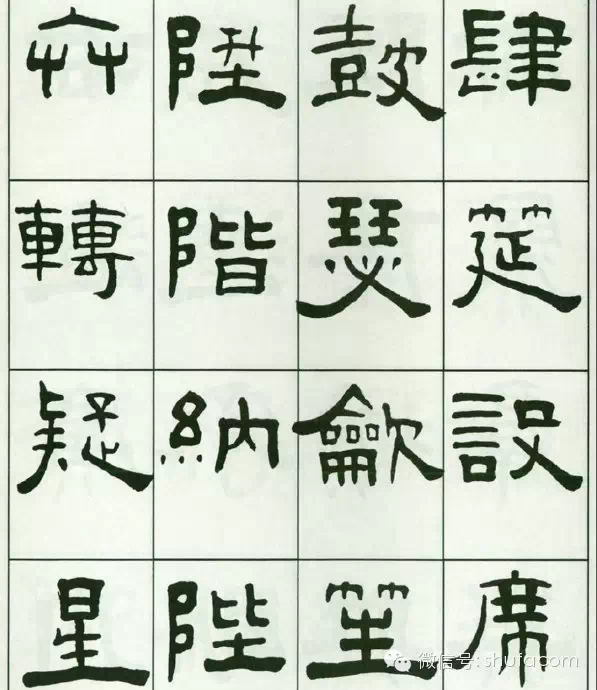 肆筵設席
皷瑟龡笙
陞階納陛
弁轉疑星
微信号: shufacom